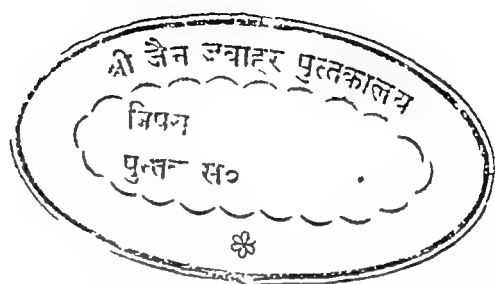 श्री जैन जवाहर पुस्तकालय
विषय
पुस्तक स०